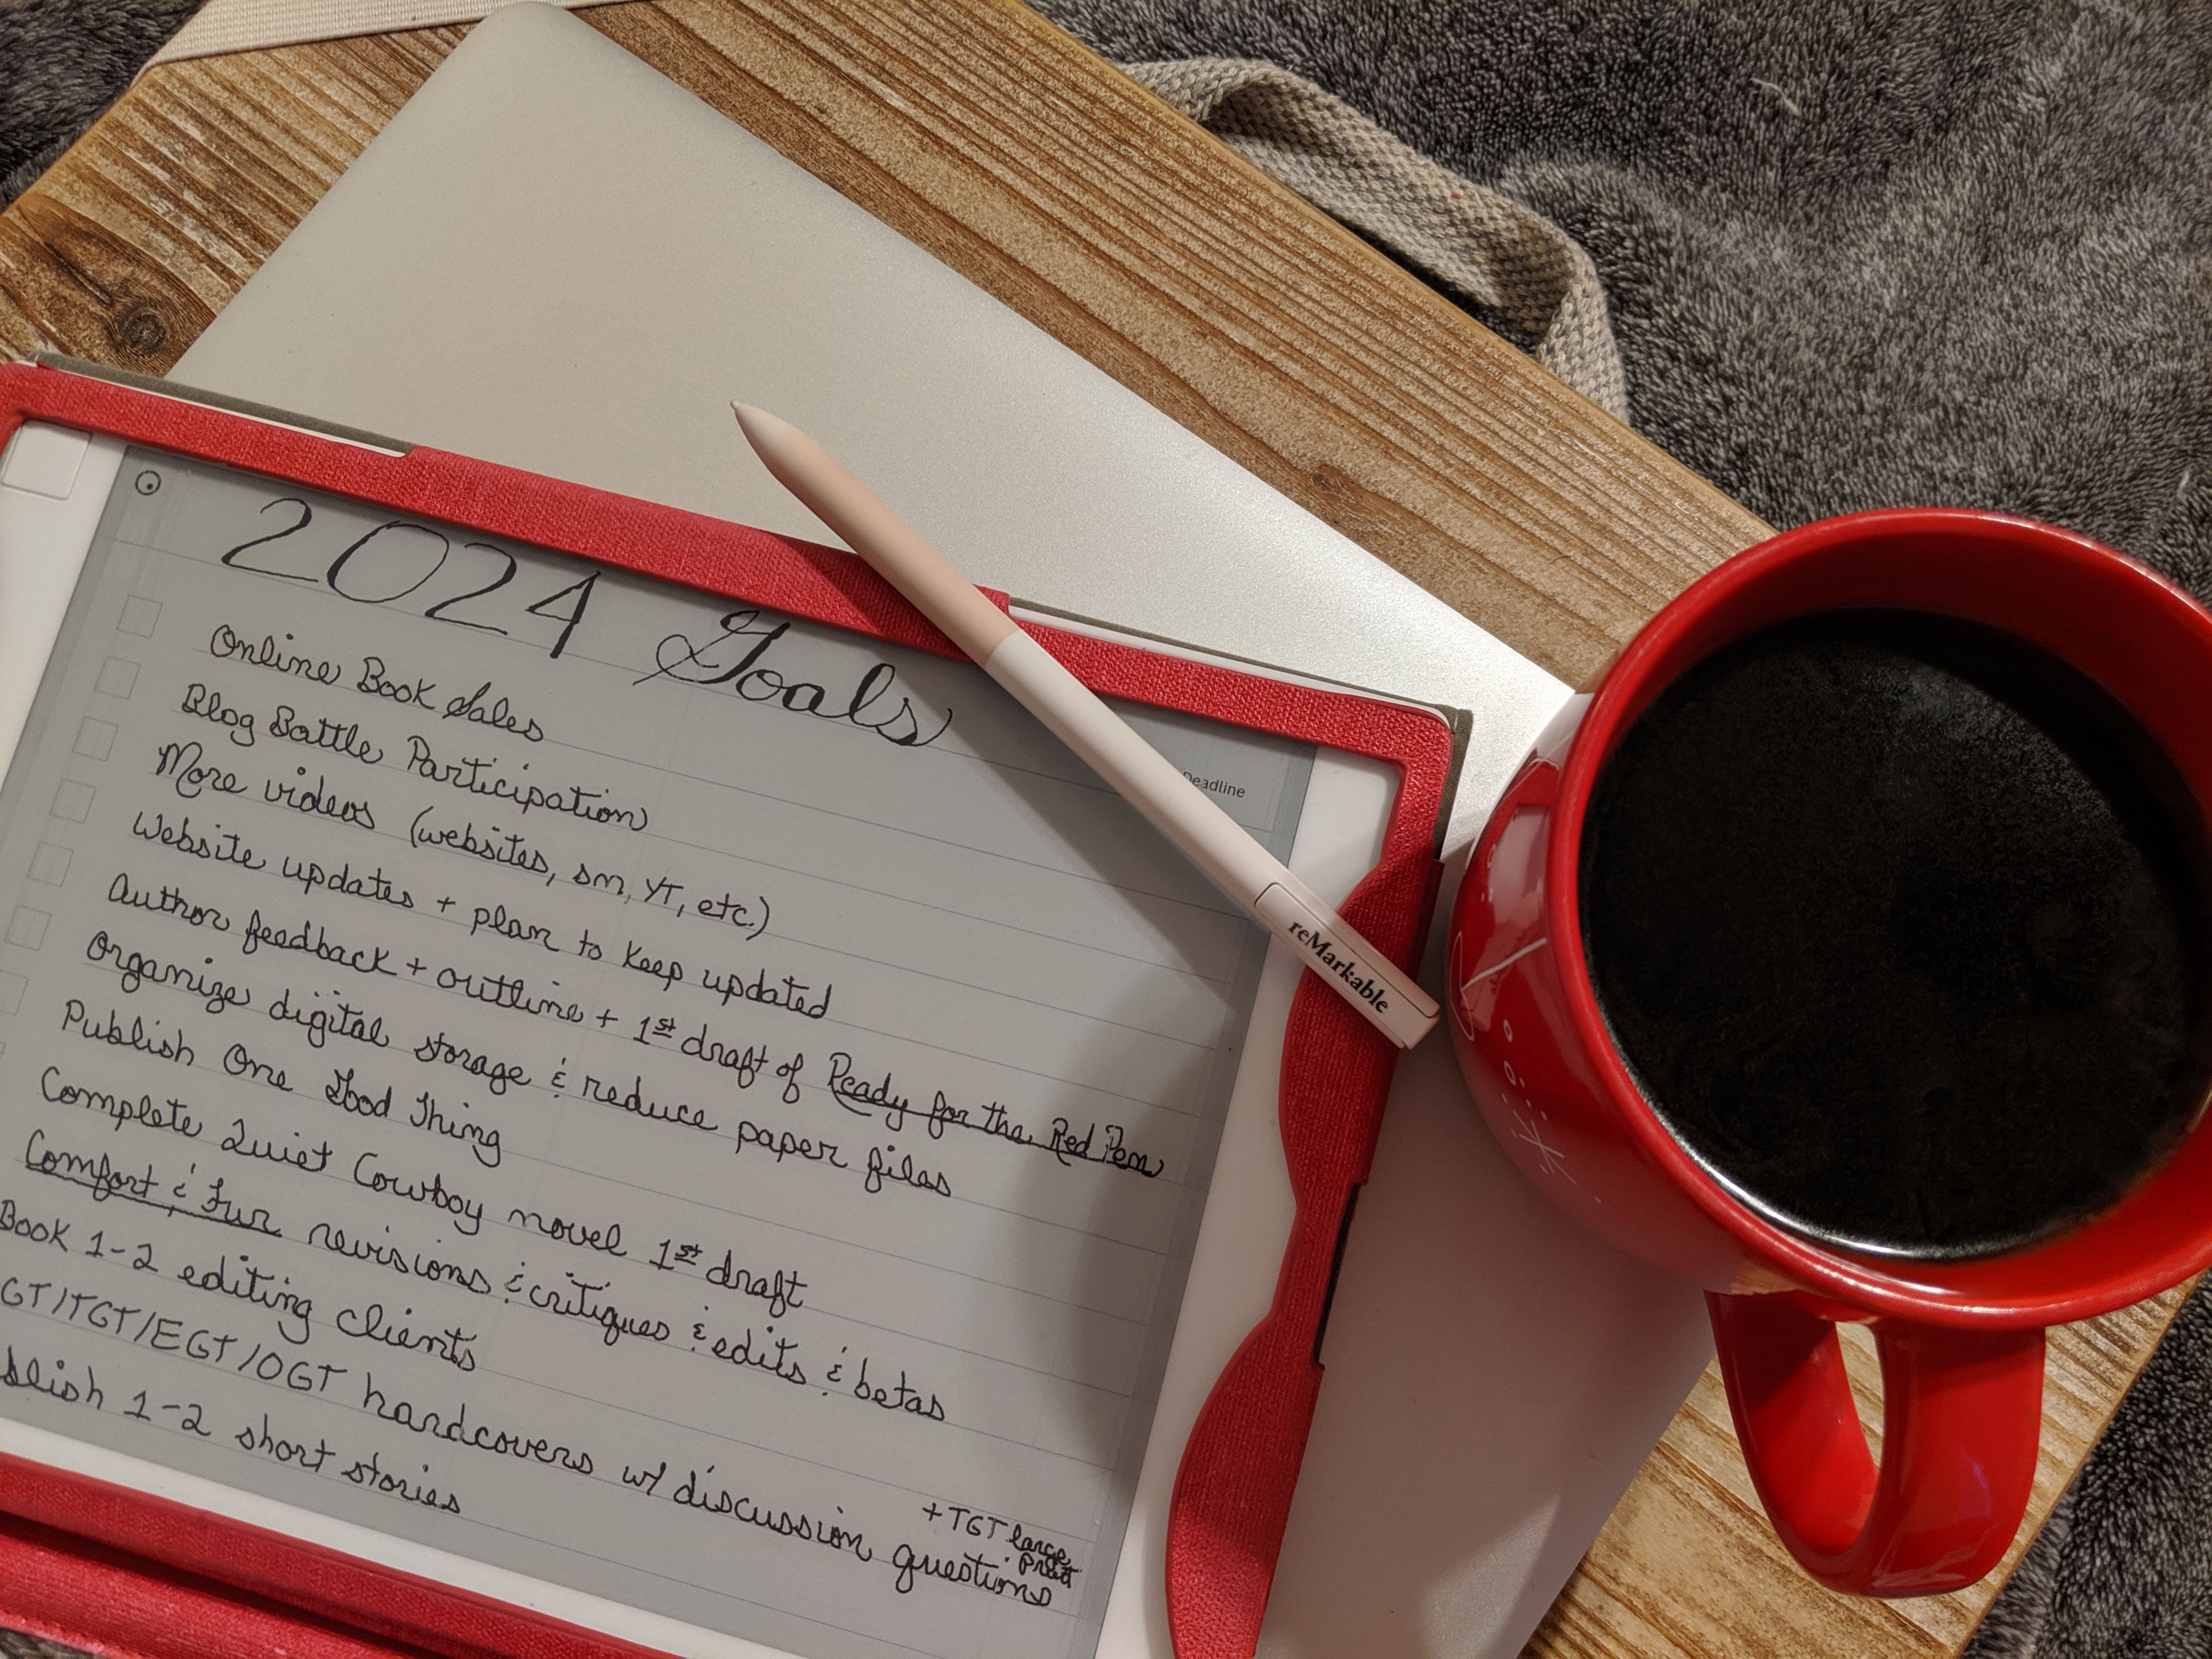 2024 Goals
Deadline
Online Book Sales
Blog Battle Participation
More videos (websites, sm, YT, etc.)
Website updates + plan to keep updated
Author feedback + outline + 1st draft of Ready for the Red Pen
Organize digital storage & reduce paper files
Publish One Good Thing
Complete Quiet Cowboy novel 1st draft
Comfort & Fur revisions & critiques & edits & betas
Book 1-2 editing clients
GT/TGT/EGT/OGT hardcovers w/ discussion questions
+ TGT large print
blish 1-2 short stories
reMarkable